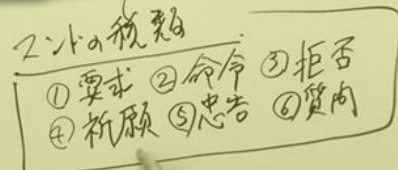 マンドの種類
①要求 ②命令 ③拒否
④祈願 ⑤忠告 ⑥質問